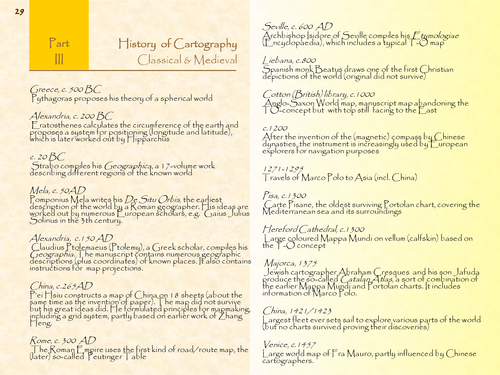 29
Part
III
History of Cartography
Classical & Medieval
Greece, c. 500 BC
Pythagoras proposes his theory of a spherical world
Alexandria, c. 200 BC
Eratosthenes calculates the circumference of the earth and
proposes a system for positioning (longitude and latitude),
which is later worked out by Hipparchus
c. 20 BC
Strabo compiles his Geographica, a 17-volume work
describing different regions of the known world
Mela, c. 50AD
Pomponius Mela writes his De Situ Orbis, the earliest
description of the world by a Roman geographer. His ideas are
worked out by numerous European scholars, e.g. Gaius Julius
Solinus in the 3th century.
Alexandria, c. 150 AD
Claudius Ptolemaeus (Ptolemy), a Greek scholar, compiles his
Geographia. The manuscript contains numerous geographic
descriptions (plus coordinates) of known places. It also contains
instructions for map projections.
China, c.265AD
Pei Hsiu constructs a map of China on 18 sheets (about the
same time as the invention of paper). The map did not survive
but his great ideas did. He formulated principles for mapmaking,
including a grid system, partly based on earlier work of Zhang
Heng.
Rome, c. 300 AD
The Roman Empire uses the first kind of road/route map, the
(later) so-called Peutinger Table
Seville, c. 600 AD
Archbishop Isidore of Seville compiles his Etymologiae
(Encyclopaedia), which includes a typical T-O map
Liebana, c.800
Spanish monk Beatus draws one of the first Christian
depictions of the world (original did not survive)
Cotton (British) library, c.1000
Anglo-Saxon World map, manuscript map abandoning the
TO-concept but with top still facing to the East
c.1200
After the invention of the (magnetic) compass by Chinese
dynasties, the instrument is increasingly used by European
explorers for navigation purposes
1271-1295
Travels of Marco Polo to Asia (incl. China)
Pisa, c.1300
Carte Pisane, the oldest surviving Portolan chart, covering the
Mediterranean sea and its surroundings
Hereford Cathedral, c.1300
Large coloured Mappa Mundi on vellum (calfskin) based on
the T-O concept
Majorca, 1375
Jewish cartographer Abraham Cresques and his son Jafuda
produce the so-called Catalan Atlas, a sort of combination of
the earlier Mappa Mundi and Portolan charts. It includes
information of Marco Polo.
China, 1421/1423
Largest fleet ever sets sail to explore various parts of the world
(but no charts survived proving their discoveries)
Venice, c.1457
Large world map of Fra Mauro, partly influenced by Chinese
cartographers.